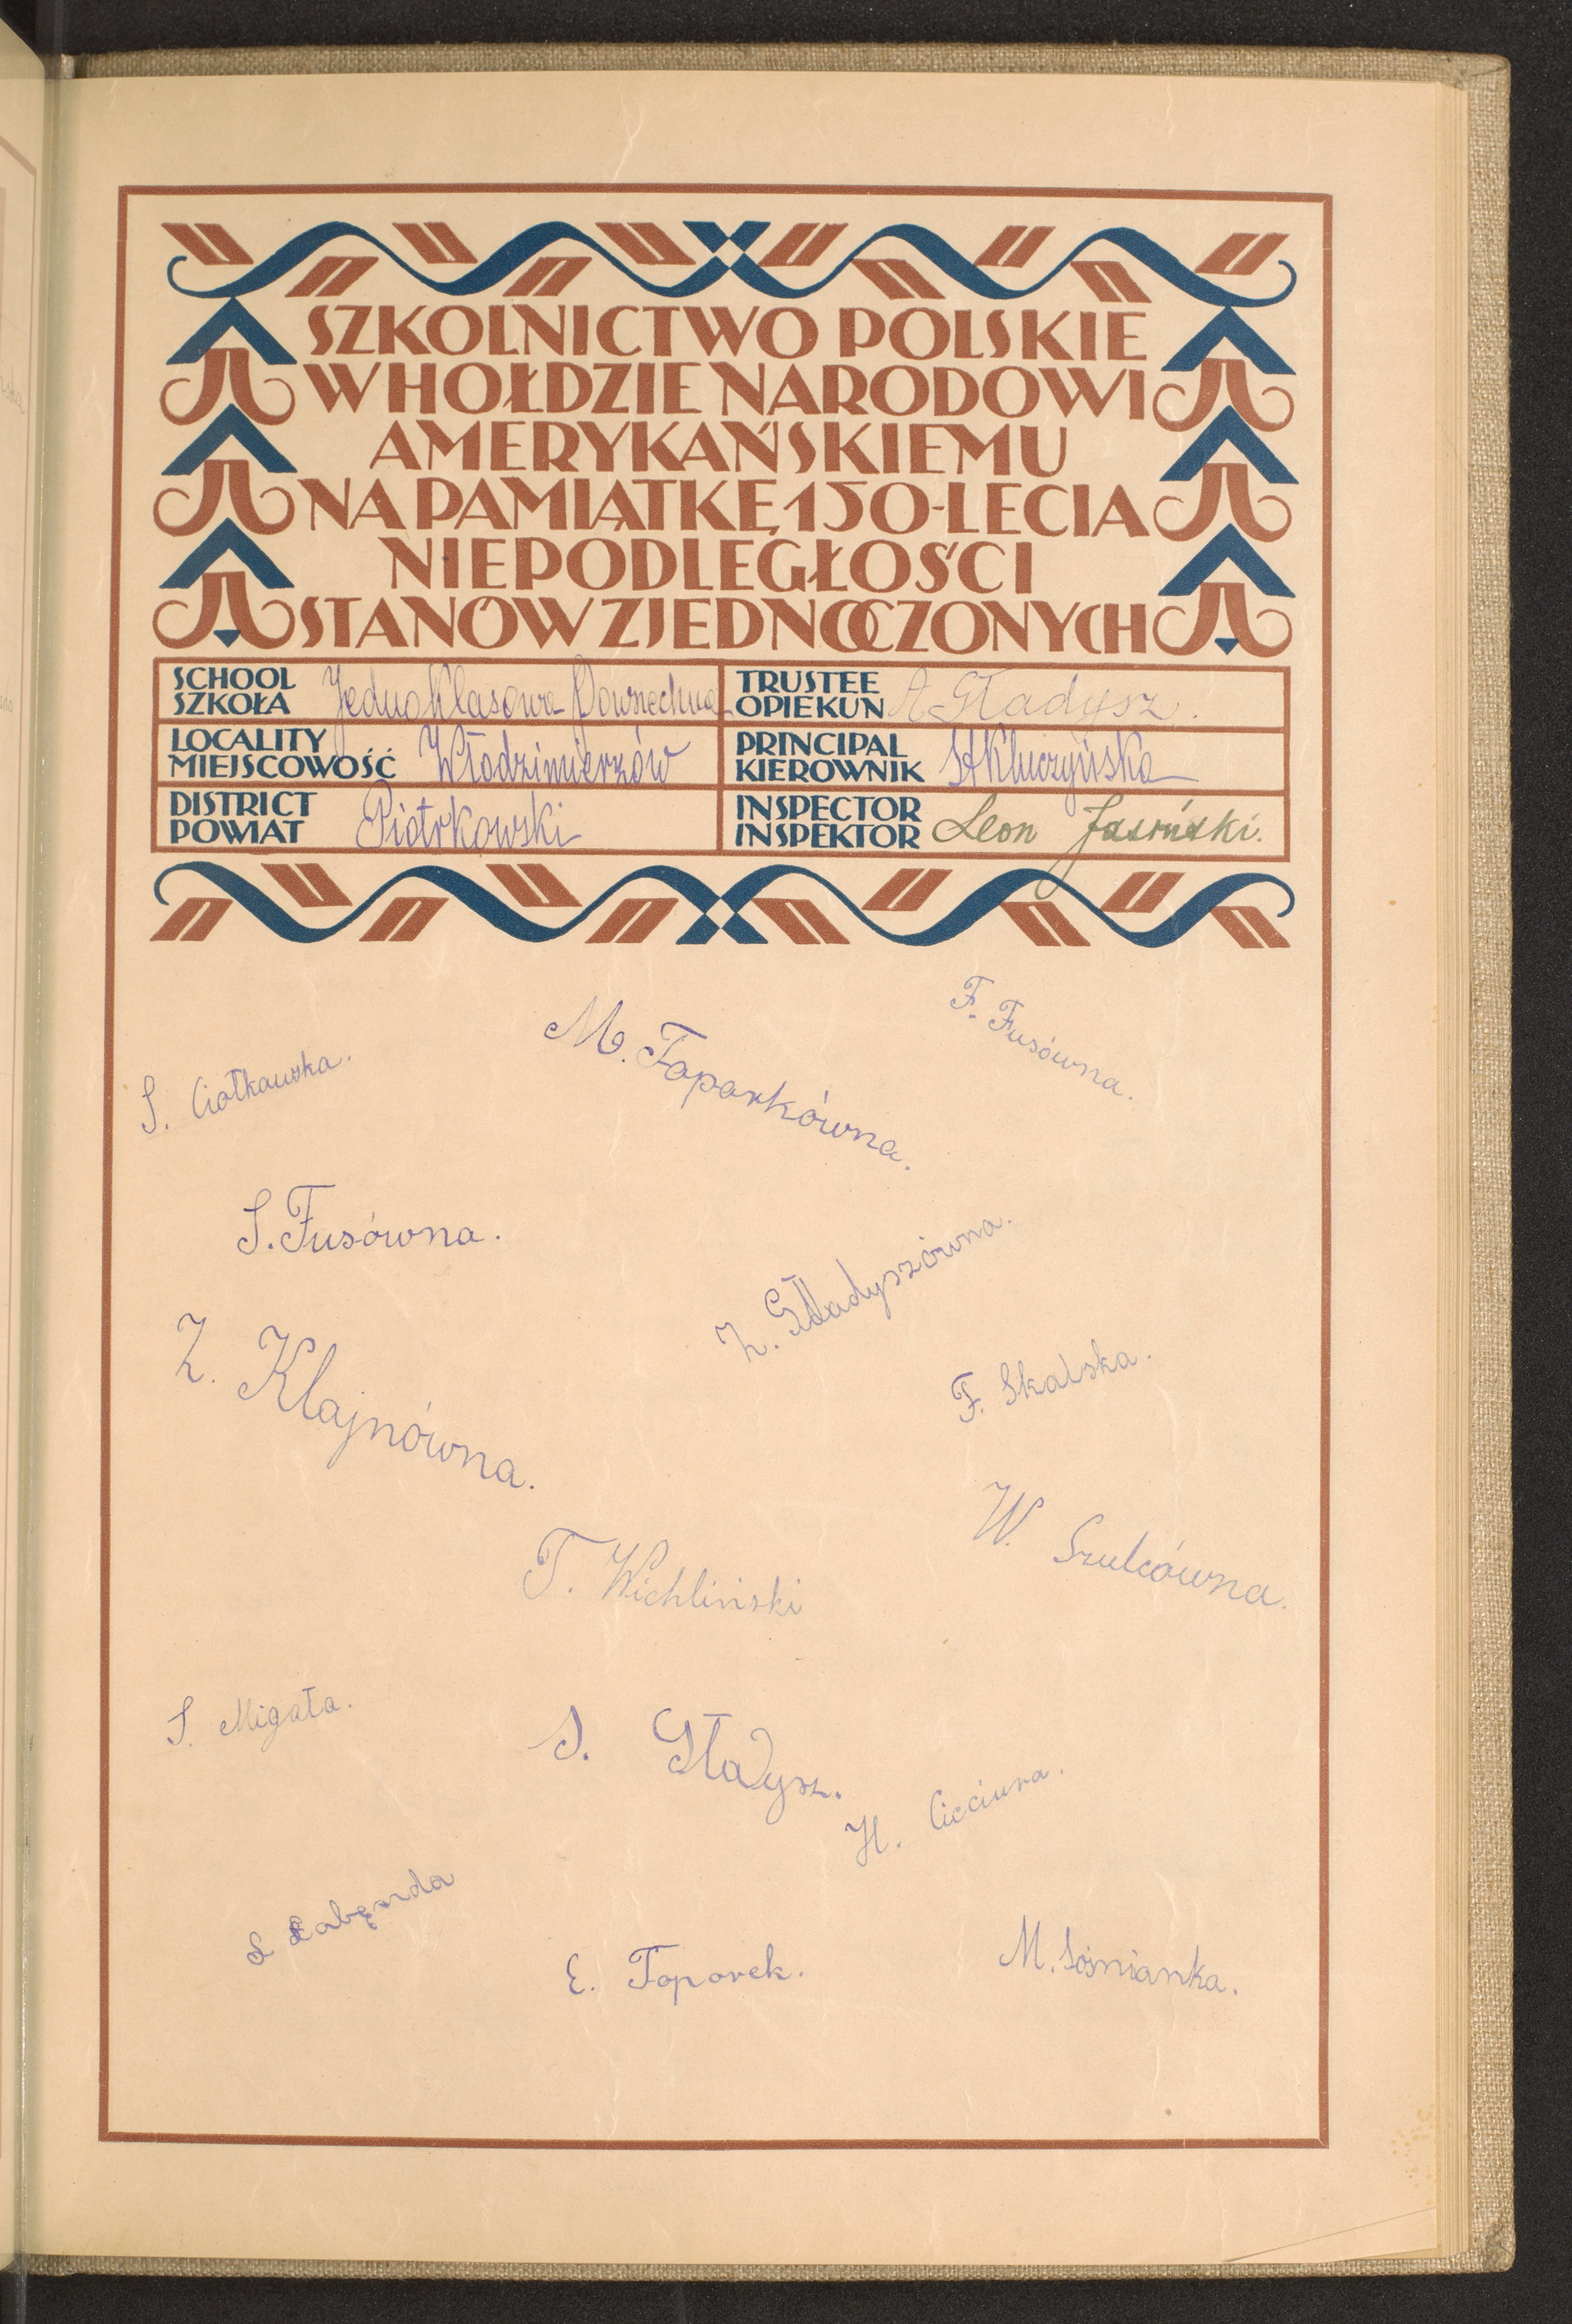 SZKOLNICTWO POLSKIE
W HOŁDZIE NARODOWI
AMERYKAŃSKIEMU
NA PAMIĄTKĘ 150-LECIA
NIEPODLEGŁOŚCI
STANÓW ZJEDNOCZONYCH
SCHOOL
SZKOŁA Jednoklasowa Powszechna
TRUSTEE
OPIEKUN A Gładysz.
LOCALITY
MIEJSCOWOŚĆ Włodzimierzów
PRINCIPAL
KIEROWNIK St Kluczyńska
DISTRICT
POWIAT Piotrkowski
INSPECTOR
INSPEKTOR Leon Jasiński.
F. Fusówna.
M. Toporkówna.
S. Ciołkowska.
S. Fusówna.
Z. Gładyszówna.
Z. Klajnówna.
F. Skalska.
W. Szulcówna.
T. Wichliński
S. Migała.
S. Gładysz.
H. Cieciura.
E. Toporek.
M. Sośnianka.